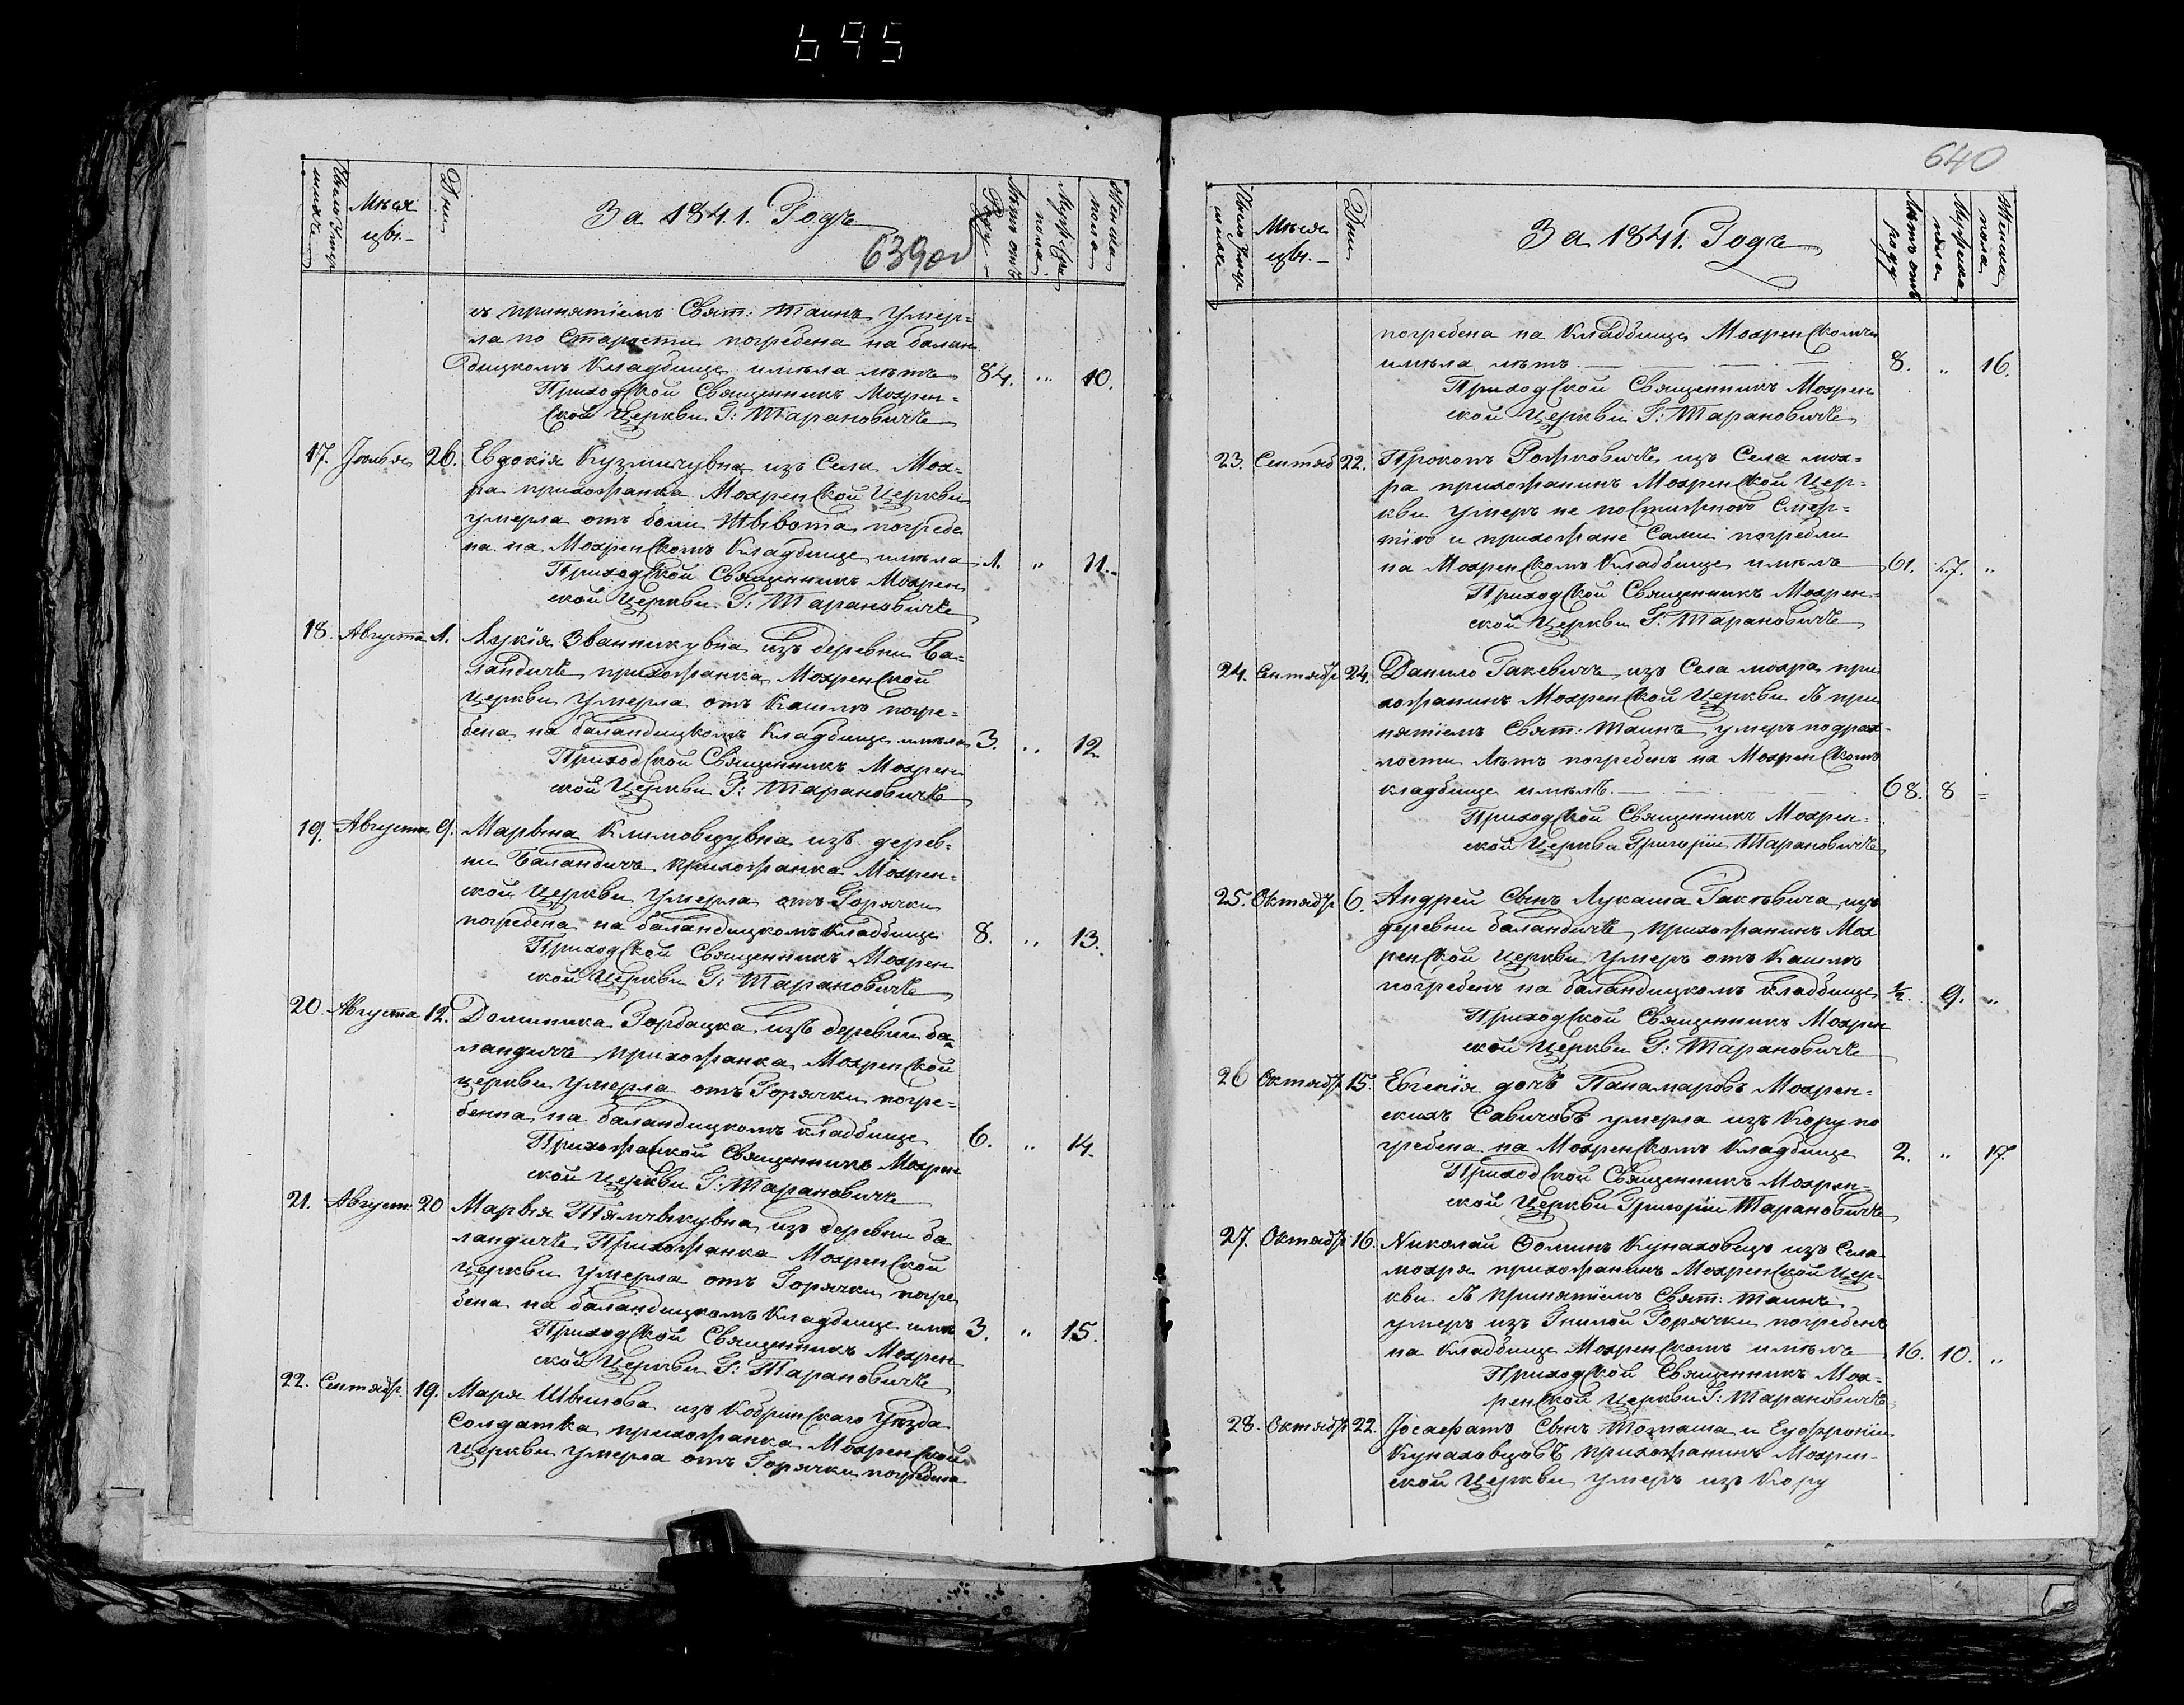 695
Число умер
шихъ
Мѣся
цы.
Дни
За 1841. Годъ
639об
Лѣтъ отъ
Роду
Мужеска
пола
Женска
пола
съ принятіемъ Свят: Таинъ умер=
ла по Старости погребена на балан
дицкомъ Кладбище имѣла лѣтъ 84. " 10.
Приходской Священникъ Мохрен=
ской Церкви Г: Тарановичъ
17. Іюлья 26. Евдокія Кузмичувна изъ Села Мох=
ра прихожанка Мохренской Церкви
умерла отъ боли Живота погребе
на на Мохренскомъ Кладбище имѣла 1. " 11.
Приходской Священникъ Мохрен
ской Церкви Г: Тарановичъ
18. Августа 1. Лукія Званникувна изъ деревни Ба=
ландичъ прихожанка Мохренской
Церкви умерла отъ Кашлю погре=
бена на баландицкомъ Кладбище имѣла 3. " 12
Приходской Священникъ Мохрен
ской Церкви Г: Тарановичъ
19. Августа 9. Марьяна Климовцувна изъ дерев=
ни Баландичъ прихожанка Мохрен=
ской Церкви умерла отъ Горячки
погребена на баландицкомъ Кладбище 8. " 13.
Приходской Священникъ Мохрен
ской Церкви Г: Тарановичъ
20. Августа 12. Доминика Горбацка изъ деревни ба=
ландичъ прихожанка Мохренской
церкви умерла отъ Горячки погре=
бенна на баландицкомъ кладбище 6. " 14.
Прихожанской Священникъ Мохрен
ской Церкви Г: Тарановичъ
21. Август. 20 Марья изъ деревни ба
ландичъ Прихожанка Мохренской
церкви умерла отъ Горячки погре
бена на баландицкомъ Кладбище имѣ 3. " 15.
Приходской Священникъ Мохрен
ской Церкви Г: Тарановичъ
22. Сентябр. 19. Маря Швылова изъ Кобринскаго Уѣзда
Солдатка прихожанка Мохренской
Церкви умерла отъ Горячки погребена
640
Число умер
шихъ
Мѣся
цы.
Дни
За 1841. Годъ
Лѣтъ отъ
роду
Мужска
пола
Женска
пола
погребена на Кладбище Мохренскомъ
имѣла лѣтъ 8. " 16.
Приходской Священникъ Мохрен
ской Церкви Г: Тарановичъ
23. Сентяб 22. Прокопъ Рожковичъ изъ Села мох=
ра прихожанинъ Мохренской Цер=
кви умеръ не постижною Смер=
тію и прихожане Сами погребли
на Мохренскомъ Кладбище имѣлъ 61. 7. "
Приходской Священникъ Мохрен=
ской Церкви Г: Тарановичъ
24. Сентябр 24. Данило Гакевичъ изъ Села мохра при
хожанинъ Мохренской Церкви съ при
нятіемъ Свят: Таинъ умеръ по драх=
лости лѣтъ погребенъ на Мохренскомъ
кладбище имѣлъ. 68. 8 =
Приходской Священникъ Мохрен=
ской Церкви Григорій Тарановичъ
25. Октябр 6. Андрей Сынъ Лукаша Гакевича изъ
деревни баландичъ, прихожанинъ Мох
ренской Церкви умеръ отъ Кашлю
погребенъ на баландицкомъ Кладбище 1/2. 9. "
Приходской Священникъ Мохрен
ской Церкви Г: Тарановичъ
26 Октябр 15. Евгенія дочъ Панамаровъ Мохрен=
скихъ Савичовъ умерла изъ Кору по
гребена на Мохренскомъ Кладбище 2. " 17.
Приходской Священникъ Мохрен=
ской Церкви Григорій Тарановичъ
27. Октябр 16. Николай Фоминъ Кунаховецъ изъ Села
мохря прихожанинъ Мохренской Цер=
кви съ принятіемъ Свят: Таинъ
умеръ изъ Гнилой Горячки погребенъ
на Кладбище Мохренскомъ имѣлъ 16. 10. "
Приходской Священникъ Мох=
ренской Церкви Г: Тарановичъ
28. Октябр 22. Іосафатъ Сынъ Томаша и Еуфроніи
Кунаховцовъ прихожанинъ Мохрен=
ской Церкви умеръ изъ Кору